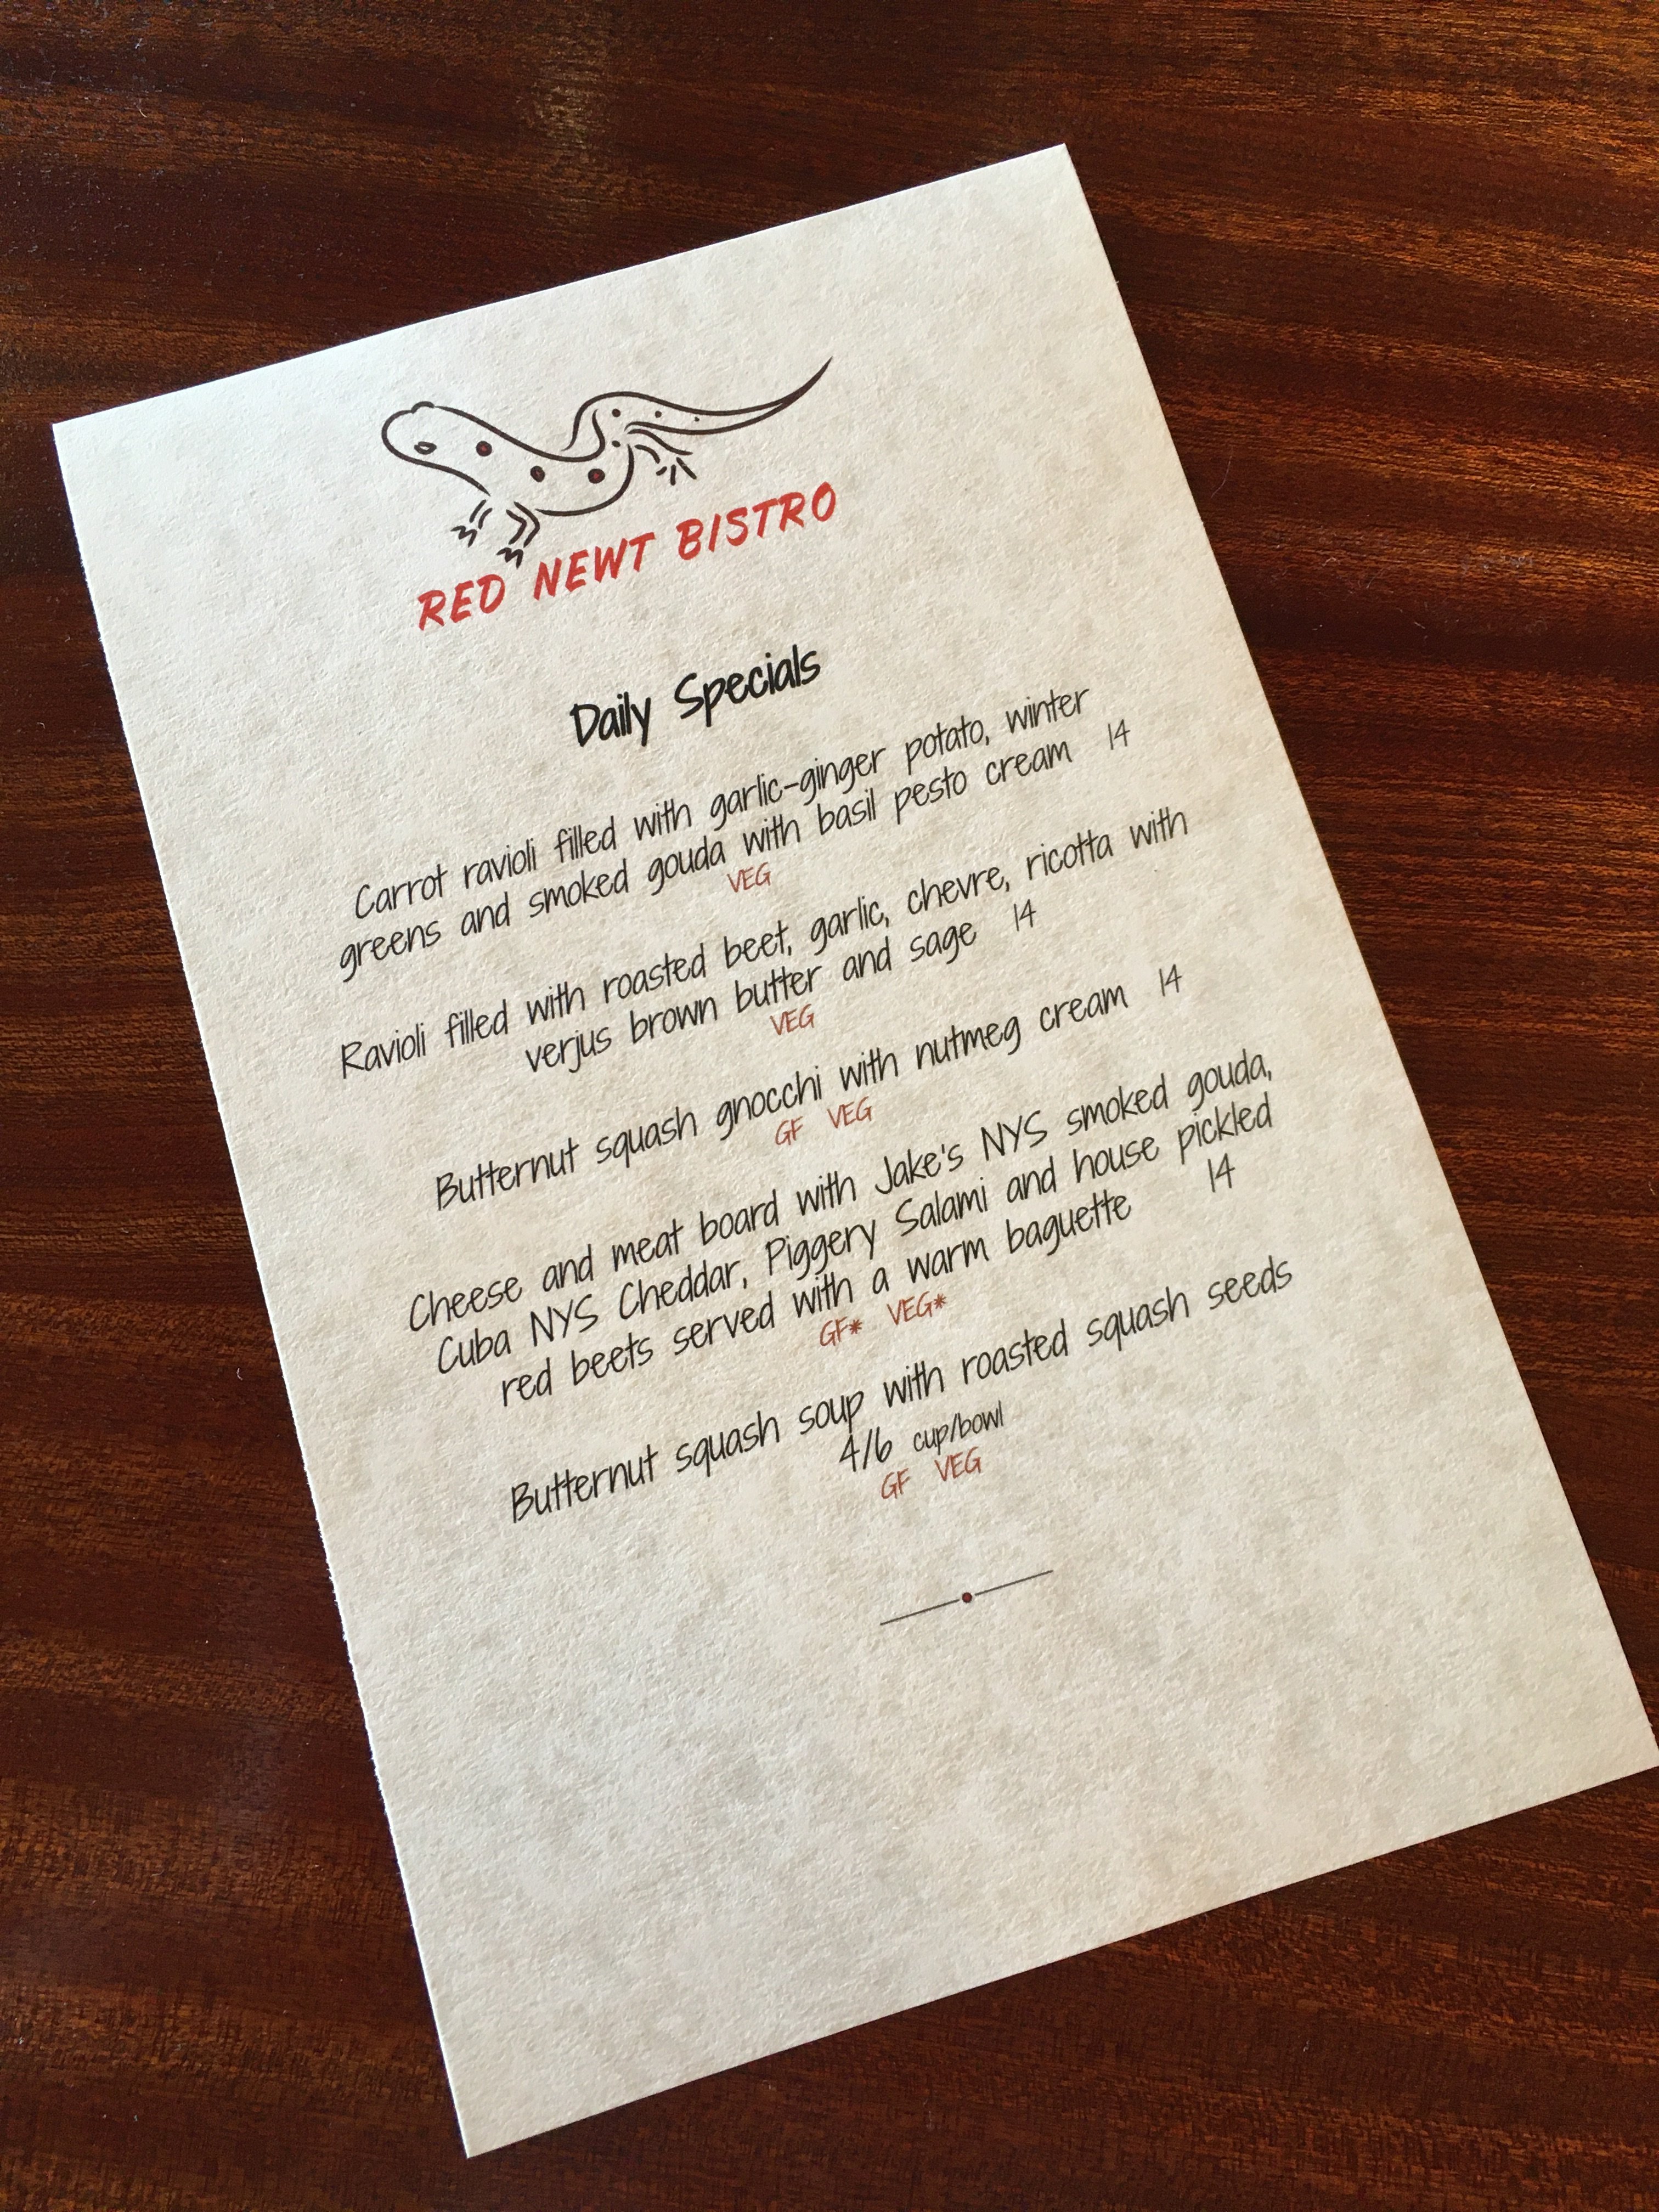 RED NEWT BISTRO
Daily Specials
Carrot ravioli filled with garlic-ginger potato, winter
greens and smoked gouda with basil pesto cream 14
VEG
Ravioli filled with roasted beet, garlic, chevre, ricotta with
verjus brown butter and sage 14
VEG
Butternut squash gnocchi with nutmeg cream 14
GF VEG
Cheese and meat board with Jake's NYS smoked gouda,
Cuba NYS Cheddar, Piggery Salami and house pickled
red beets served with a warm baguette 14
GF* VEG*
Butternut squash soup with roasted squash seeds
4/6 cup/bowl
GF VEG